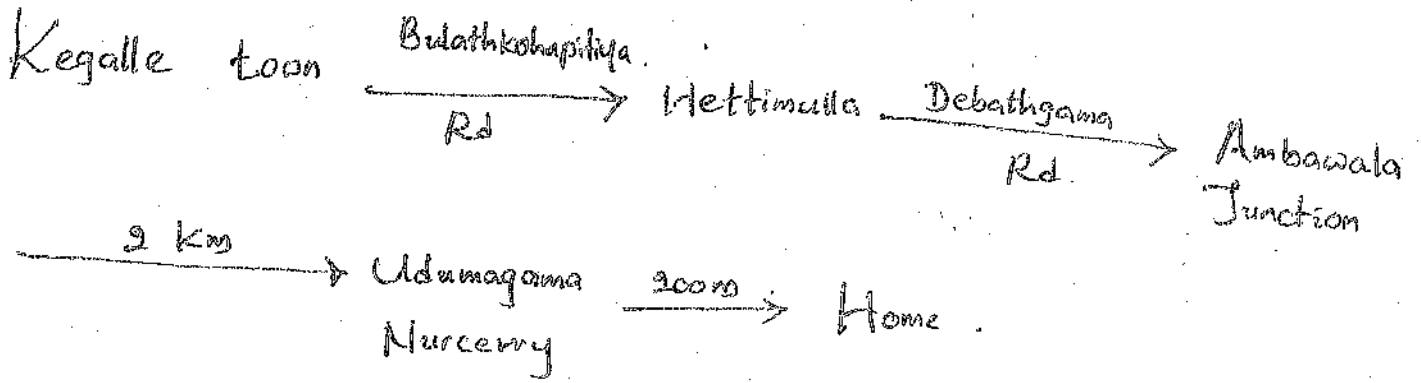 Kegalle toon Bulathkohapitiya Rd Hettimulla Debathgama Rd. Ambawala Junction
2 Km Udumagama Nurcerry 200m Home.